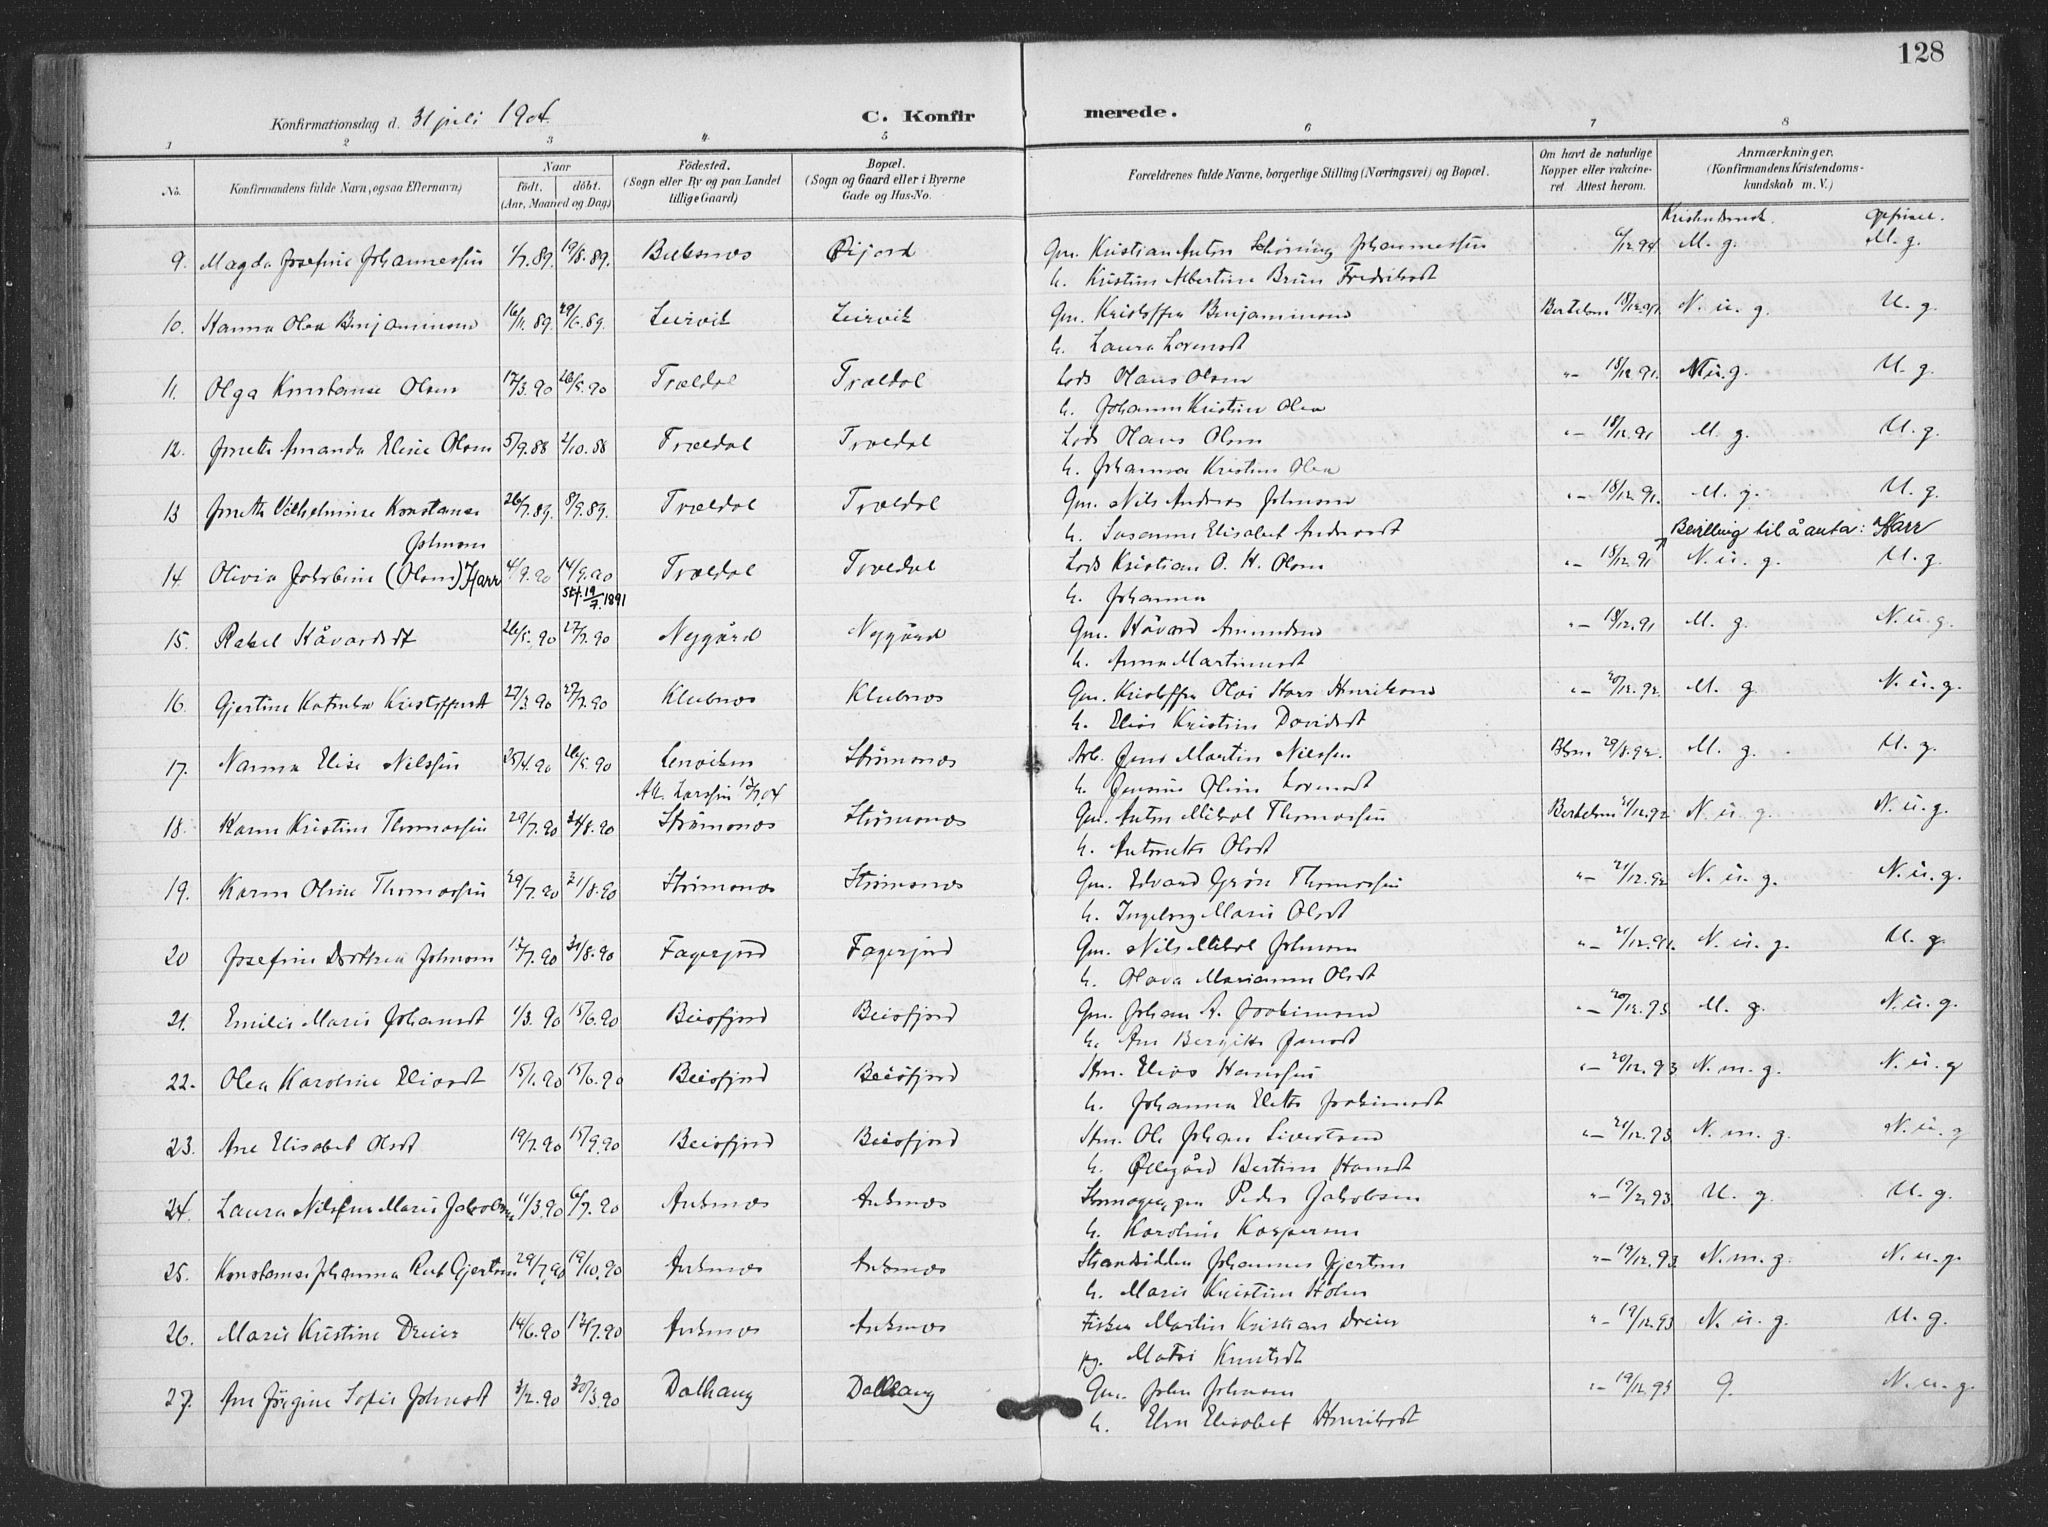 128
Konfirmationsdag d. 31 juli 1904.
C. Konfir merede.
1 2 3 4. 5 6 7 8
No. Konfirmandens fulde Navn, ogsaa Efternavn) Naar födt. döbt. (Aar, Maaned og Dag) Födested. (Sogn eller By og paa Landet tillige Gaard) Bopæl. (Sogn og Gaard eller i Byerne Gade og Hus-No. Forældrenes fulde Navne, borgerlige Stilling (Næringsvei) og Bopæl. Om havt de naturlige Kopper eller vakcineret. Attest herom. Anmærkninger. (Konfirmandens Kristendomskundskab m. V.)
9. Magda Josefine Johannessen 1/7.89. 19/8.89. Gm. Kristian Anton Schöning Johannessen 6/12.94 M. g. M. g.
h. Kristine Albertine Brun Fredriksdt
10. Hanna Olea Benjaminsen 29/6.89. Leirvik Leirvik Gm. Kristoffer Benjaminsen Bertelsen N. u. g. U. g.
h. Laura Larsnadt
11. Olga Konstanse Olsen 17/3.90 26/5.90 Trældal Trældal Lods Hans Olsen "– 18/12.91. N. u. g. U. g.
h. Johanna Kristine Olea
12. Amanda Elise Olsen 5/9.88 2/10.88 Trældal Trældal Lods Hans Olsen "– 18/12.91 M. g. U. g.
h. Johanna Kristine Olea
13 Vilhelmine Konstanse 26/7.89. 8/9.89. Trældal Trældal Gm. Nils Andreas Johnsen "– 18/12.91. M. g. U. g.
Johnsen h. Susanna Elisabet Andersdt Bevilling til å anta: Harr
14. Olivia (Olsen) Harr 4/9.90 14/9.90 Trældal Trældal Lods Kristian O. H. Olsen "– 18/12.91 N. u. g. U. g.
Stf. 19/7.1891 h. Johanna
15. Rakel Håvardsdt 26/5.90 27/7.90 Nygård Nygård Gm. Håvard Amundsen "– 18/12.91 M. g. N. u. g.
h. Anna Martinsdt
16. Gjertine Kristoffersdt 27/3.90 27/7.90 Klubnæs Klubnæs Gm. Kristoffer Henriksen "– 20/12.92. M. g. N. u. g.
h. Kristine Davidsdt
17. Nanna Elise Nilssen 25/4.90 26/5.90 Lenviken Strömsnæs Arb. Jens Martin Nilssen 29/8.92. M. g. U. g.
Larssen 17/7.04 h. Jensine Oline Larsnadt
18. Karen Kristine Thomassen 29/7.90 24/8.90 Strömsnæs Strömsnæs Gm. Anton Mikal Thomassen Bertelsen 21/12.92. N. u. g. N. u. g.
h. Antonette Olsdt
19. Karen Oline Thomassen 29/7.90 31/8.90 Strömsnæs Strömsnæs Gm. Edvard Grön Thomassen "– 21/12.92 N. u. g. N. u. g.
h. Ingeborg Marie Olsdt
20 Josefine Dorthea Johnsen 17/7.90 31/8.90 Fagerjord Fagerjord Gm. Nils Mikal Johnsen N. u. g. U. g.
h. Olava Marianna Olsdt
21. Emilie Marie Johansdt 1/3.90 15/6.90 Beisfjord Beisfjord Gm. Johan A. Joakimsen "– 20/12.93 M. g. N. u. g.
h. Ane Bergitte Jensdt
22. Olea Karoline Eliasdt 15/1.90 15/6.90 Beisfjord Beisfjord Stm. Elias Hanssen "– 20/12.93 N. m. g. N. u. g
h. Johanna Joakimsdt
23. Ane Elisabet Olsdt 19/7.90 15/9.90 Beisfjord Beisfjord Stm. Ole Johan Sivertsen "– 21/12.93 N. m. g. N. u. g
h. Öllegård Bertine Hansdt
24. Laura Marie 11/3.90 6/7.90 Ankenæs Ankenæs Peder Jakobsen "– 19/12.93. U. g. U. g.
h. Karoline Kaspersen
25. Konstanse Johanna Rut Gjertsen 29/7.90 19/10.90 Ankenæs Ankenæs Strandsidder Johannes Gjertsen "– 19/12.93 N. m. g. N. u. g.
h. Marie Kristine Holm
26. Marie Kristine Dreier 14/6.90 13/7.90 Ankenæs Ankenæs Fisker Martin Kristian Dreier "– 19/12.93 N. u. g. U. g.
pg. Knutsdt
27. Ane Jörgine Sofie Johnsdt 3/2.90 30/3.90 Dalhaug Dalhaug Gm. John Johnsen "– 19/12.93 g. N. u. g.
h. Elen Elisabet Henriksdt